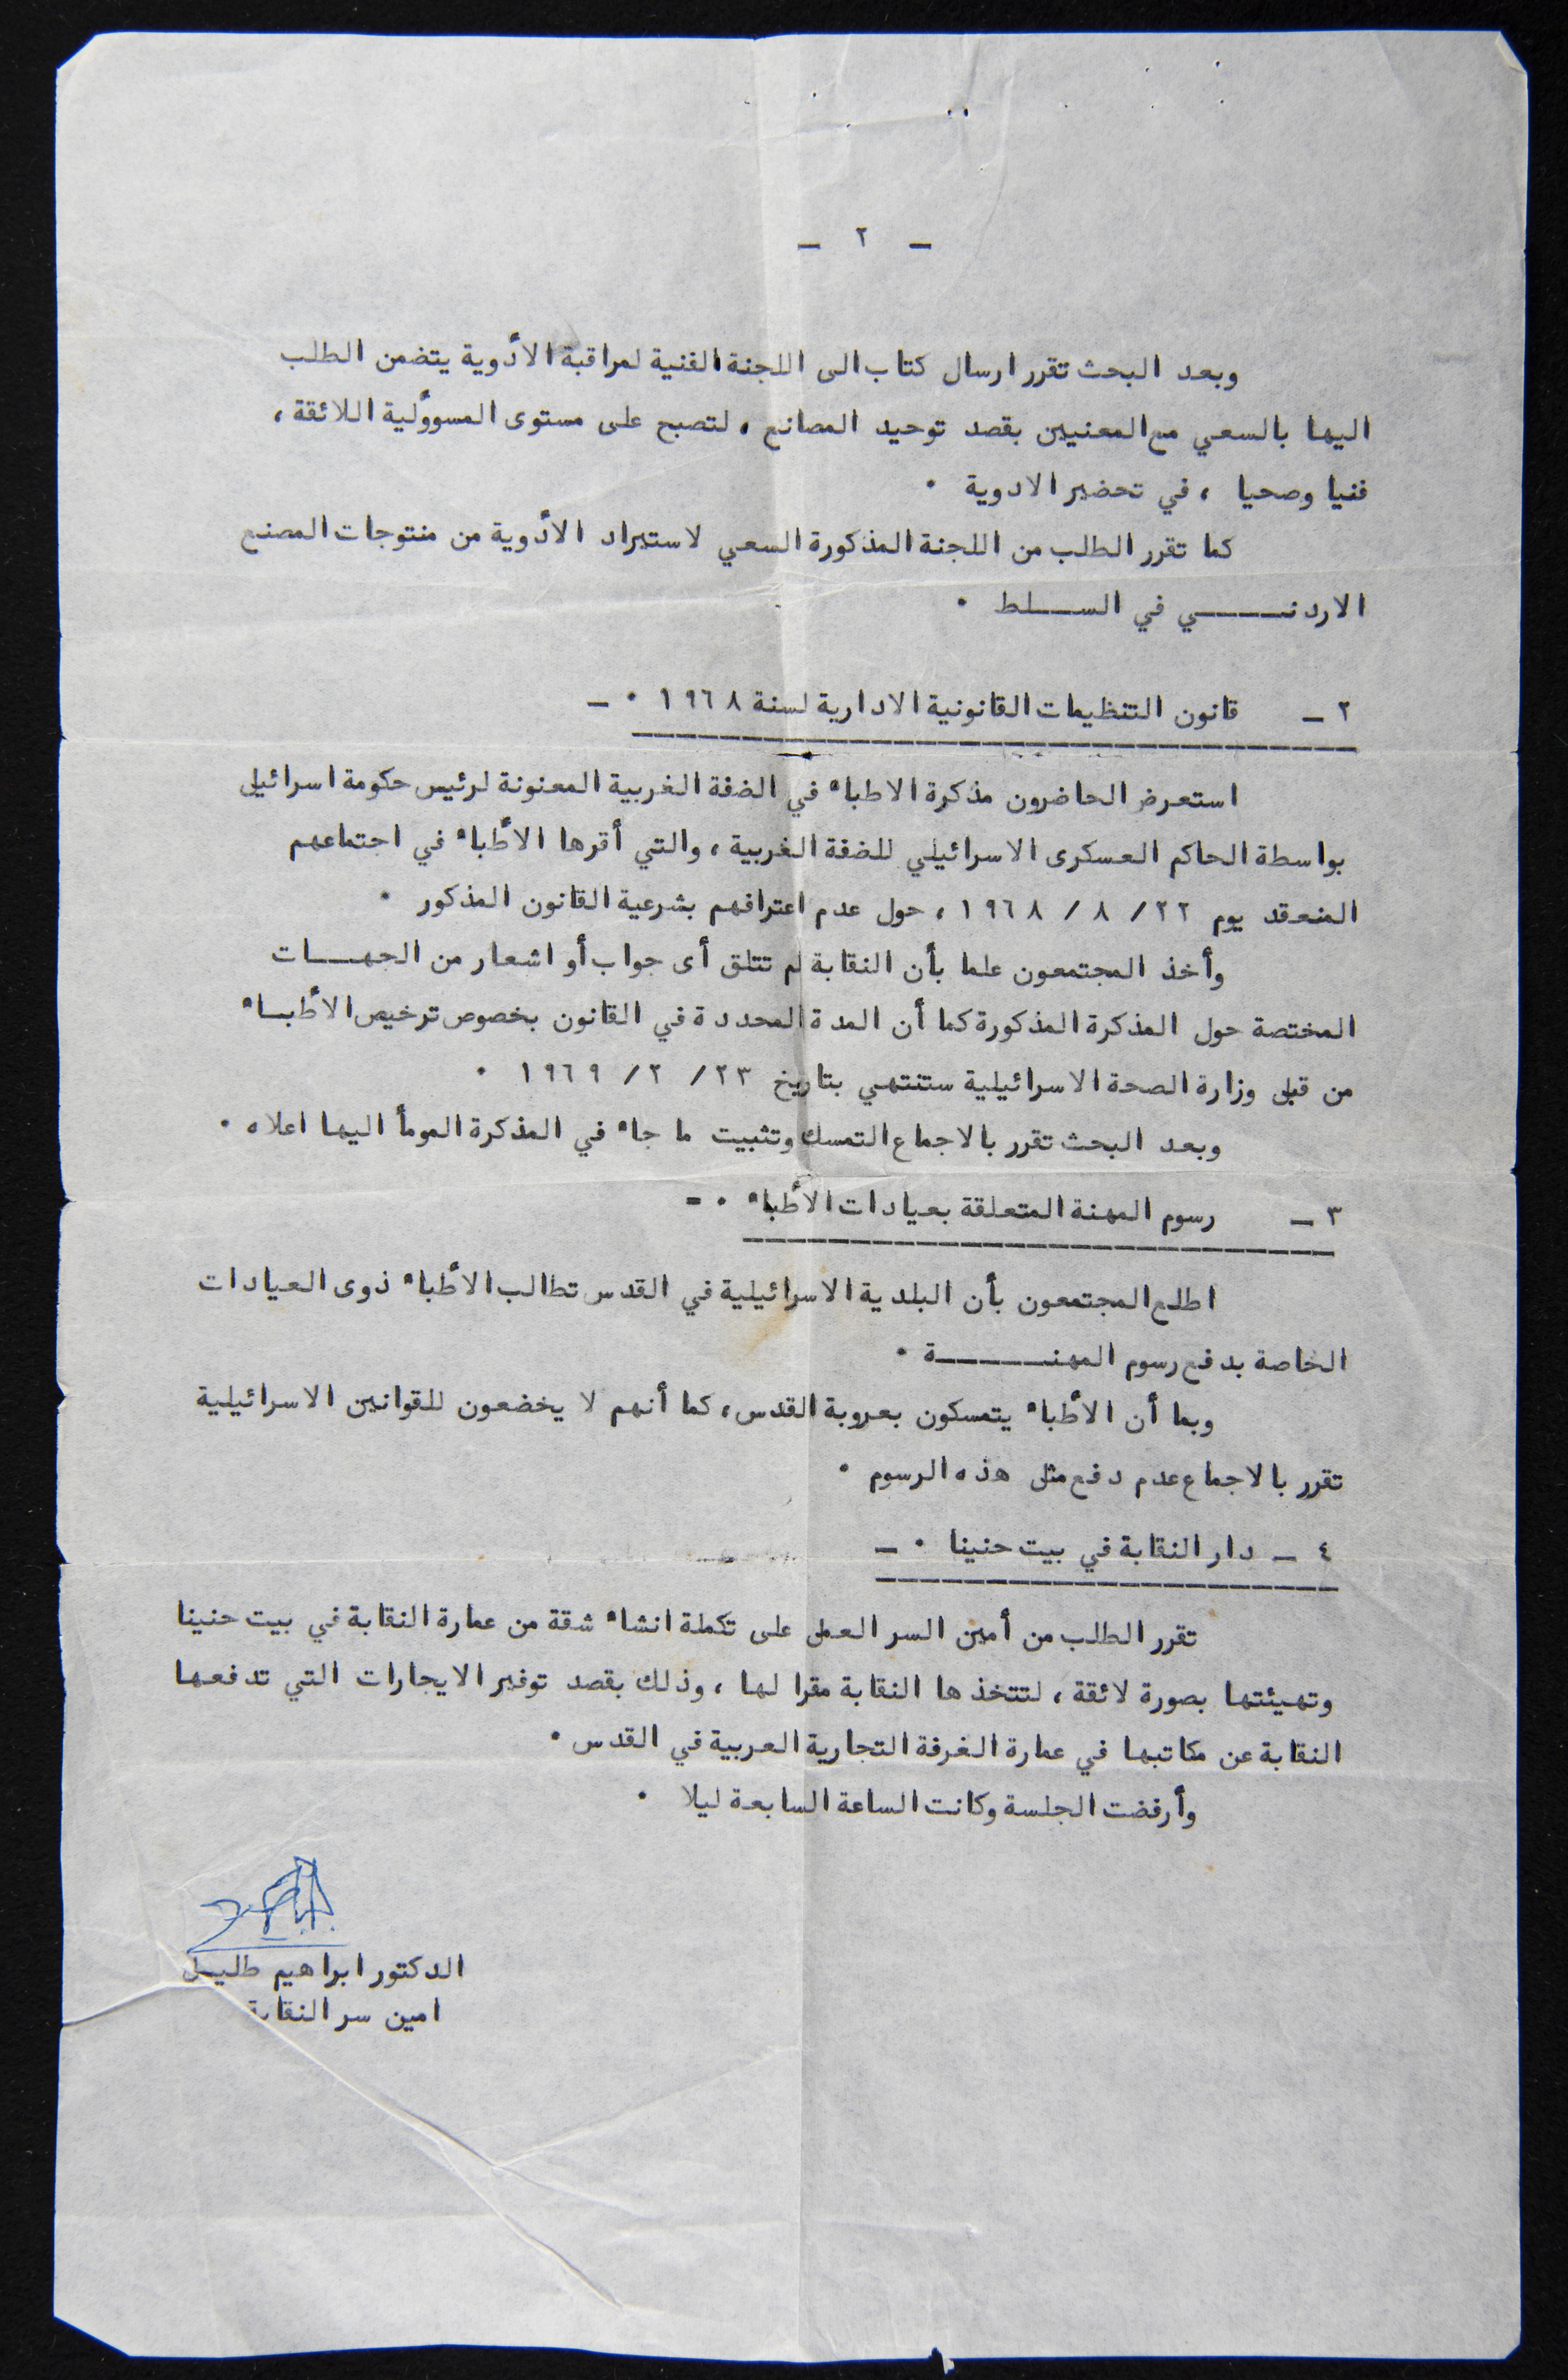 ـ ٢ ـ
وبعد البحث تقرر ارسال كتاب الى اللجنة الفنية لمراقبة الأدوية يتضمن الطلب
اليها بالسعي مع المعنيين بقصد توحيد المصانع ، لتصبح على مستوى المسوؤلية اللائقة ،
فنيا وصحيا ، في تحضير الادوية ٠
كما تقرر الطلب من اللجنة المذكورة السعي لاستيراد الأدوية من منتوجات المصنع
الاردنـــــــي في الســــلط ٠
٢ ـ قانون التنظيمات القانونية الادارية لسنة ١٩٦٨ ٠ ـ
استعرض الحاضرون مذكرة الاطباء في الضفة الغربية المعنونة لرئيس حكومة اسرائيل
بواسطة الحاكم العسكرى الاسرائيلي للضفة الغربية ، والتي أقرها الأطباء في اجتماعهم
المنعقد يوم ٢٢/ ٨ / ١٩٦٨ ، حول عدم اعترافهم بشرعية القانون المذكور ٠
وأخذ المجتمعون علما بأن النقابة لم تتلق أى جواب أو اشعار من الجهـــات
المختصة حول المذكرة المذكورة كما أن المدة المحددة في القانون بخصوص ترخيص الأطبـاء
من قبل وزارة الصحة الاسرائيلية ستنتهي بتاريخ ٢٣/ ٢ /١٩٦٩ ٠
وبعد البحث تقرر بالاجماع التمسك وتثبيت ما جاء في المذكرة المومأ اليها اعلاه ٠
٣ ـ رسوم المهنة المتعلقة بعيادات الأطباء ٠ =
اطلع المجتمعون بأن البلدية الاسرائيلية في القدس تطالب الأطباء ذوى العيادات
الخاصة بدفع رسوم المهنـــــــــة ٠
وبما أن الأطباء يتمسكون بعروبة القدس ، كما أنهم لا يخضعون للقوانين الاسرائيلية
تقرر بالاجماع عدم دفع مثل هذه الرسوم ٠
٤ ـ دار النقابة في بيت حنينا ٠ ـ
تقرر الطلب من أمين السر العمل على تكملة انشاء شقة من عمارة النقابة في بيت حنينا
وتهيئتها بصورة لائقة ، لتتخذها النقابة مقرا لها ، وذلك بقصد توفير الايجارات التي تدفعها
النقابة عن مكاتبها في عمارة الغرفة التجارية العربية في القدس ٠
وأرفضت الجلسة وكانت الساعة السابعة ليلا ٠
الدكتور ابراهيم طليـل
امين سر النقابة